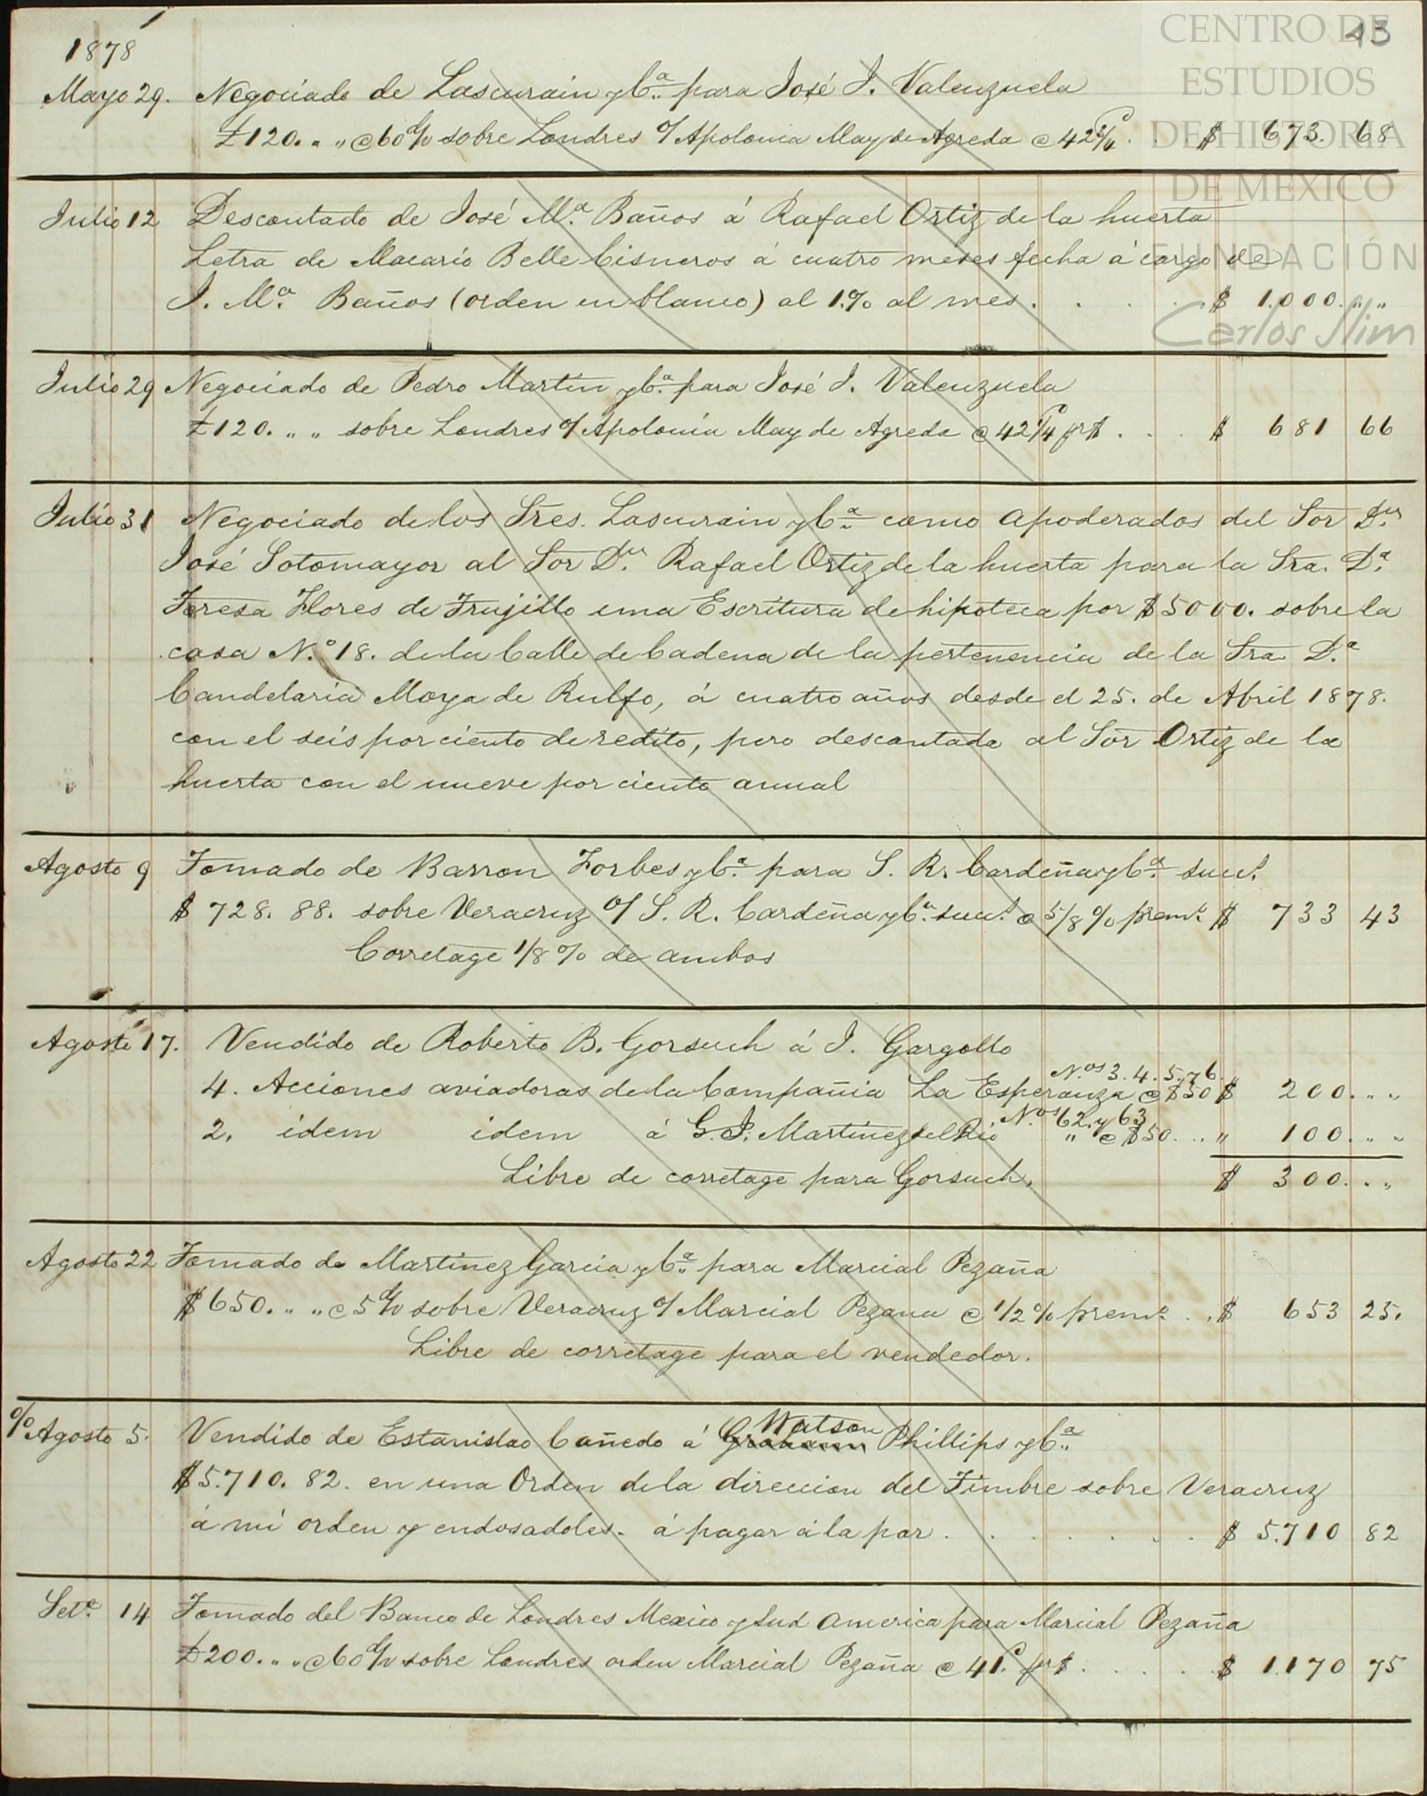 CENTRO DE
ESTUDIOS
DE HISTORIA
DE MÉXICO
FUNDACIÓN
Carlos Slim
43
1878
Mayo 29. Negociado de Lascurain y Cª para José J. Valenzuela
£120. " " @ 60 d/v sobre Londres o/ Apolonia May de Agreda @ 42 $ 673. 68
Julio 12 Descontado de José Mª Baños á Rafael Ortiz de la huerta
Letra de Macario Belle Cisneros á cuatro meses fecha á cargo de
J. Mª Baños (orden en blanco) al 1.% al mes. . . . . $ 1.000. " "
Julio 29 Negociado de Pedro Martin y Cª para José J. Valenzuela
£120. " " sobre Londres o/ Apolonia May de Agreda @ 42 1/4 pr $ . . . $ 681 66
Julio 31 Negociado de los Sres. Lascurain y Cª como apoderados del Sor Dn
José Sotomayor al Sor Dn Rafael Ortiz de la huerta para la Sra. Dª
Teresa Flores de Trujillo una Escritura de hipoteca por $5000. sobre la
casa N.º 18. de la Calle de Cadena de la pertenencia de la Sra Dª
Candelaria Moya de Rulfo, á cuatro años desde el 25. de Abril 1878.
con el seis por ciento de redito, pero descontada al Sor Ortiz de la
huerta con el nueve por ciento anual
Agosto 9 Tomado de Barron Forbes y Cª para S. R. Cardeña y Cª suc.s
$ 728. 88. sobre Veracruz o/ S. R. Cardeña y Cª suc.s @ 5/8 % prem.o $ 733 43
Corretage 1/8 % de ambos
Agosto 17. Vendido de Roberto B. Gorsuch á J. Gargollo
Nos 3. 4. 5. y 6.
4. Acciones aviadoras de la Compañia La Esperanza @ $50 $ 200. " "
Nos 62. y 63
2. idem idem á G. J. Martinez del Rio " @ $50. .. " 100. " "
Libre de corretage para Gorsuch. $ 300. " "
Agosto 22 Tomado de Martinez Garcia y Cª para Marcial Pezaña
$650. " " @ 5 d/v sobre Veracruz o/ Marcial Pezana @ 1/2 % prem.o . . $ 653 25.
Libre de corretage para el vendedor.
Watson
% Agosto 5. Vendido de Estanislao Cañedo á Graham Phillips y Cª
$5.710. 82. en una Orden de la direccion del Timbre sobre Veracruz
á mi orden y endosadoles. á pagar á la par . . . . . . . $ 5.710 82
Set.e 14 Tomado del Banco de Londres Mexico y Sud America para Marcial Pezaña
£200. " " @ 60 d/v sobre Londres orden Marcial Pezaña @ 41. pr $ . . . . . $ 1.170 75